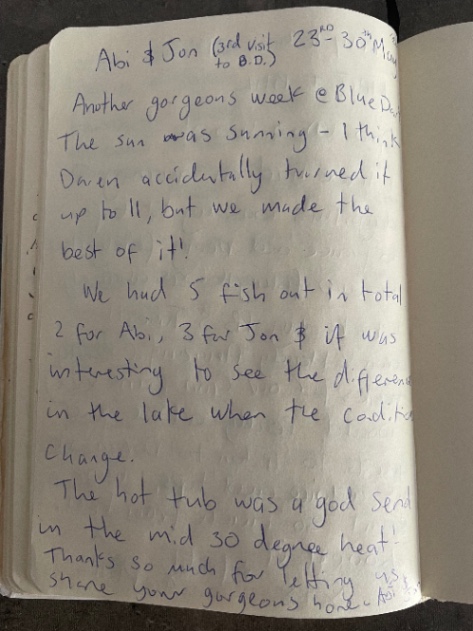 Abi & Jon (3rd visit to B.D.) 23RD - 30TH May
Another gorgeous week @ Blue
The sun was sunning - I think
Daven accidentally turned it
up to 11, but we made the
best of it!
We had 5 fish out in total
2 for Abi, 3 for Jon & it was
interesting to see the differenc
in the lake when the conditio
change.
The hot tub was a god send
in the mid 30 degree heat!
Thanks so much for letting us
share your gorgeous home - Abi &